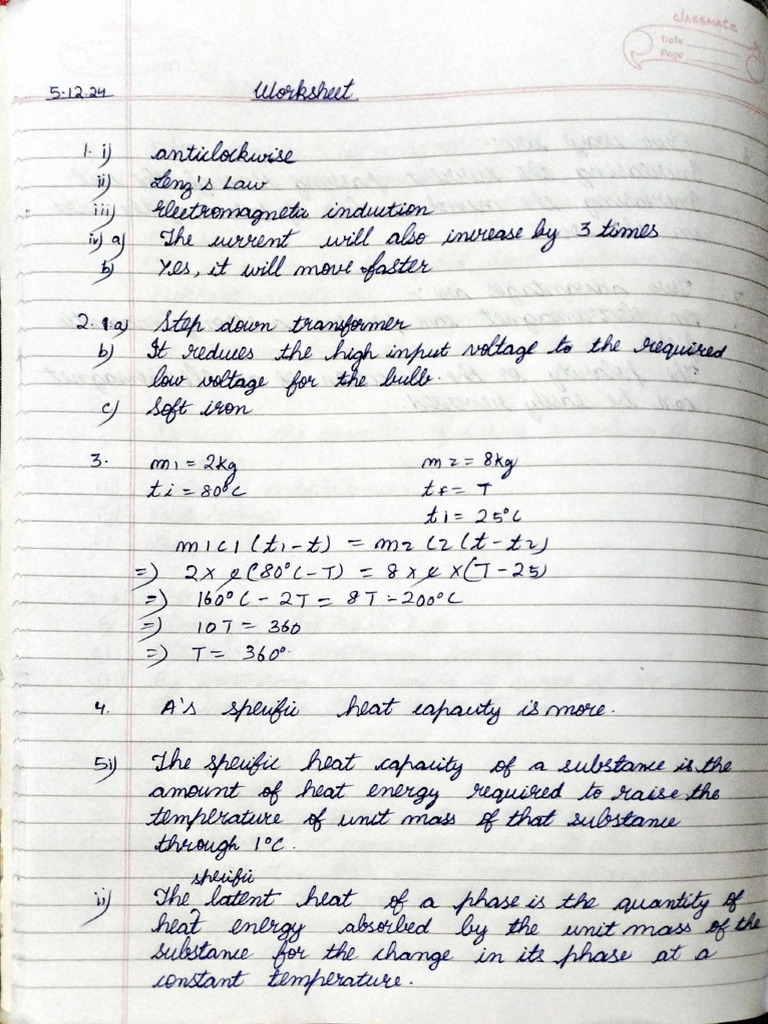 classmate
Date
Page
5.12.24 Worksheet
1. i) anticlockwise
ii) Lenz's Law
iii) Electromagnetic induction
iv) a) The current will also increase by 3 times
b) Yes, it will move faster
2. 1.a) Step down transformer
b) It reduces the high input voltage to the required
low voltage for the bulb.
c) Soft iron
3. m1 = 2kg m2 = 8kg
ti = 80°C tf = T
t1 = 25°C
m1c1(t1-t) = m2c2(t-t2)
=) 2x c(80°C-T) = 8 x c x(T-25)
=) 160°C - 2T = 8T - 200°C
=) 10T = 360
=) T = 360°
4. A's specific heat capacity is more.
5i) The specific heat capacity of a substance is the
amount of heat energy required to raise the
temperature of unit mass of that substance
through 1°C.
specific
ii) The latent heat of a phase is the quantity of
heat energy absorbed by the unit mass of the
substance for the change in its phase at a
constant temperature.